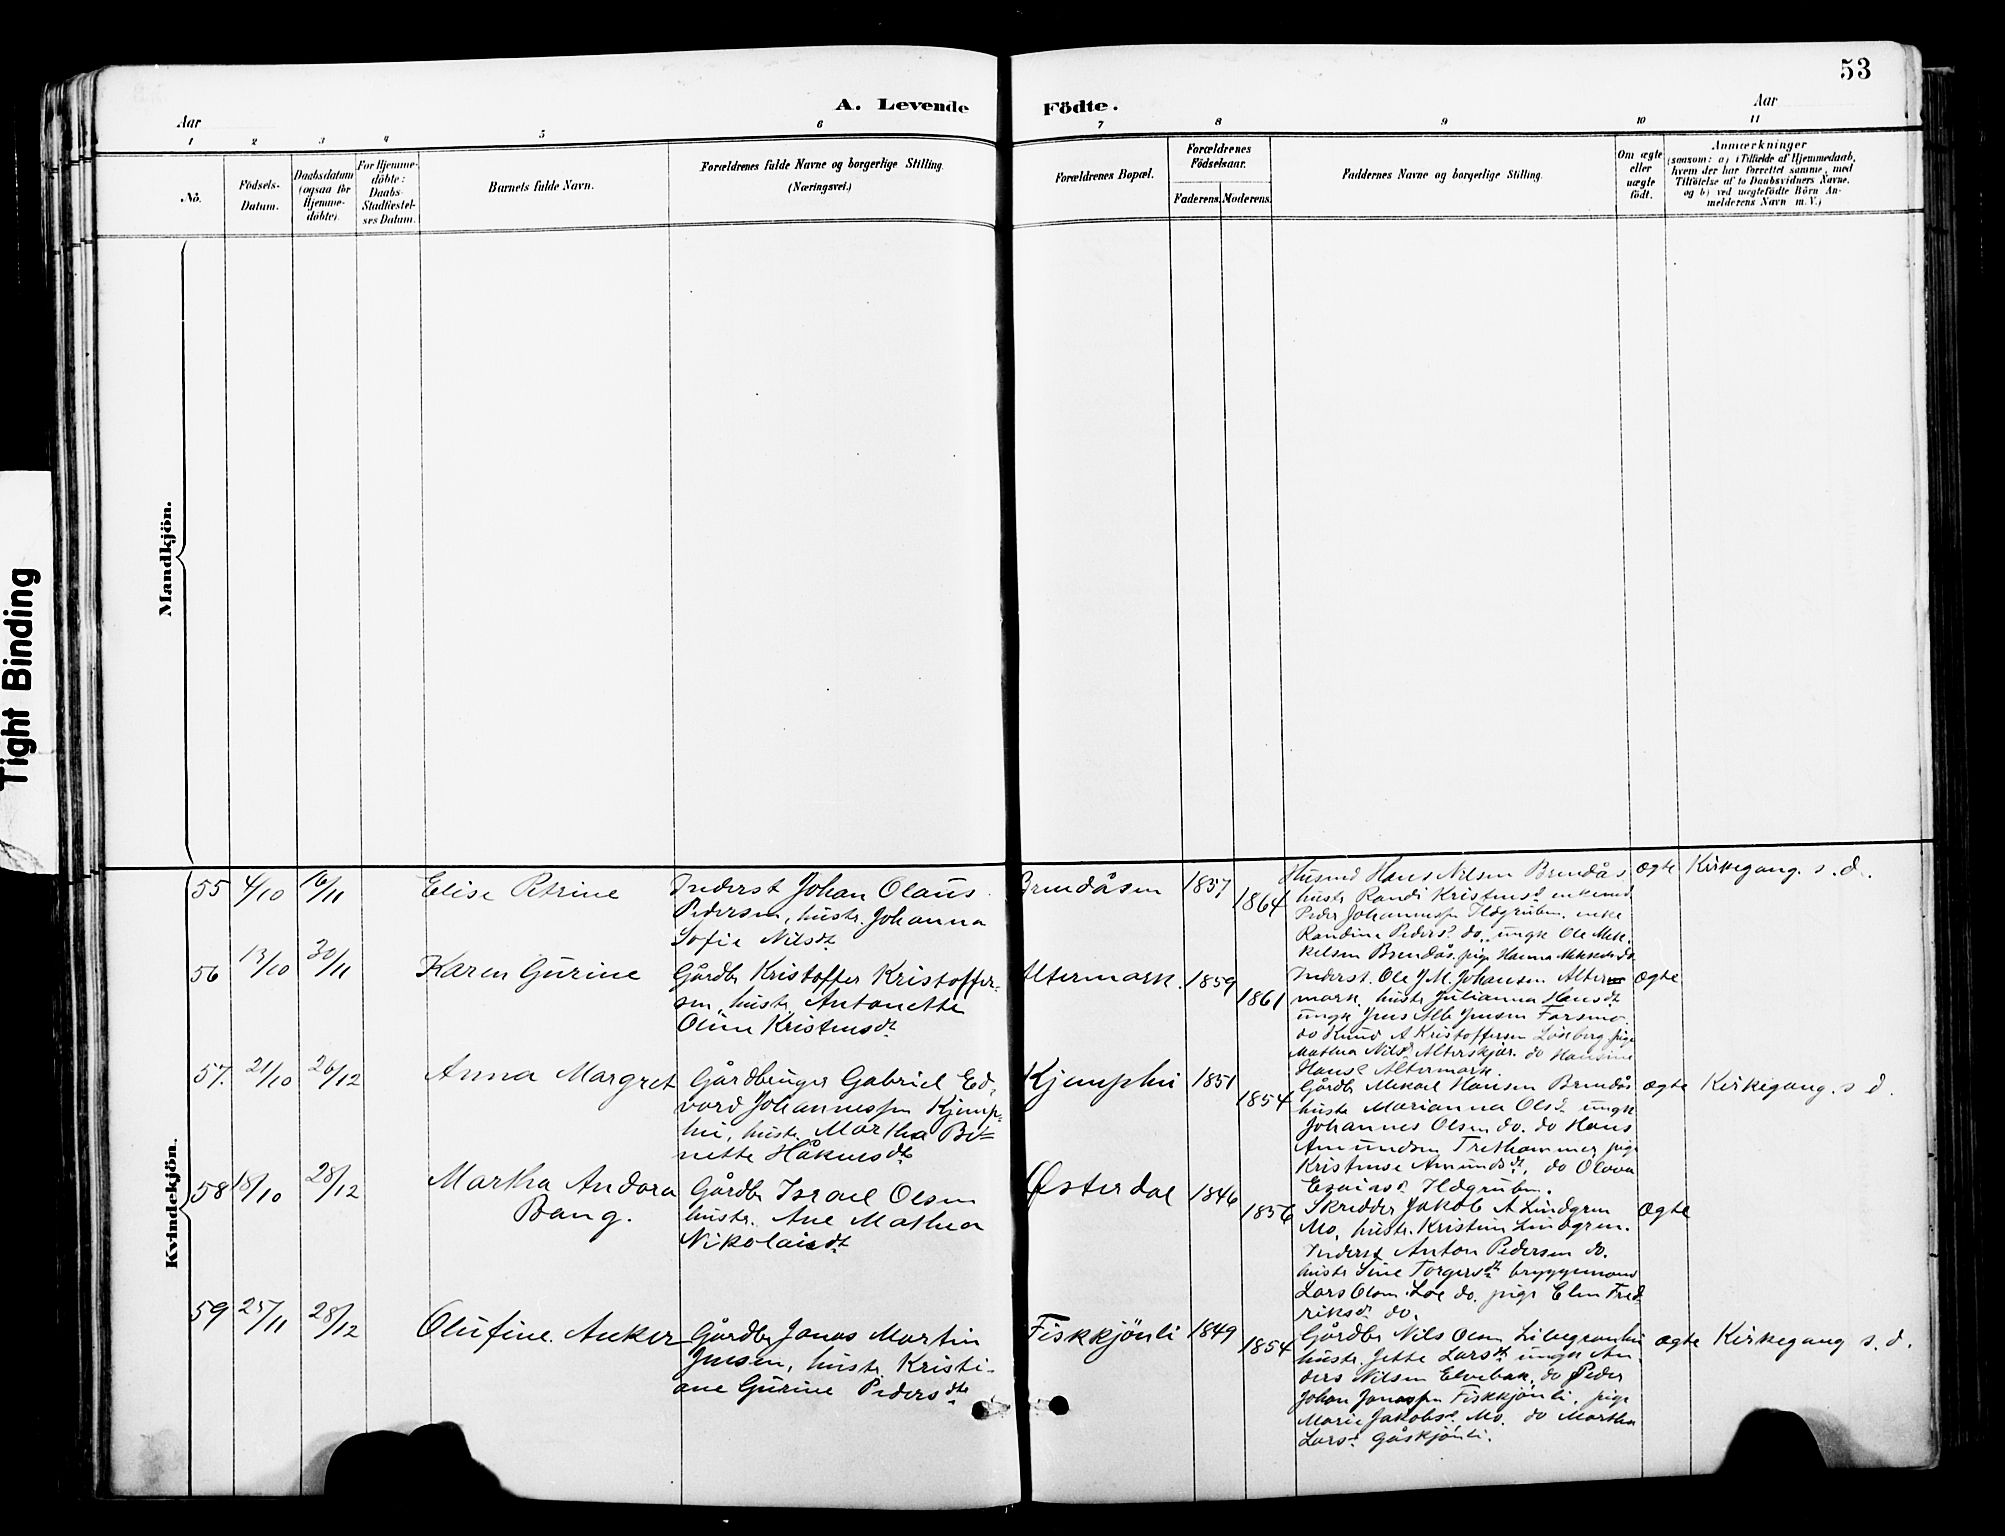 53
A. Levende Födte.
Aar
Aar
1 2 3 4 5 6 7 8 9 10 11
Nö.
Födsels-
Datum.
Daabsdatum
(ogsaa for
Hjemme-
döbte).
For Hjemme-
döbte:
Daabs-
Stadfæstel-
ses Datum.
Barnets fulde Navn.
Forældrenes fulde Navne og borgerlige Stilling.
(Næringsvei.)
Forældrenes Bopæl.
Forældrenes
Födselsaar.
Faderens. Moderens.
Faddernes Navne og borgerlige Stilling.
Om ægte
eller
uægte
födt.
Anmærkninger
(saasom: a) i Tilfælde af Hjemmedaab,
hvem der har forrettet samme, med
Tilföielse af to Daabsvidners Navne,
og b) ved uægtefödte Börn An-
melderens Navn m. V.)
Tight Binding
Mandkjön.
Kvindekjön.
55 4/10 16/11 Elise Petrine
Inderst Johan Olaus
Pedersen, hustr. Johanna
Sofie Nilsdt
Brendåsen 1857 1864
Husmd Hans Nilsen Brendås
hustr Randi Kristensd enkemd
Peder Johannessen Ildgruben, enke
Randine Pedersd do, ungk Ole Mik-
kelsen Brendås, pige Hanna
ægte Kirkegang. s. d.
56 13/10 30/11 Karen Gurine
Gårdbr Kristoffer Kristoffer-
sen, hustr. Antonette
Oline Kristensdt
Altermark. 1859 1861
Inderst. Ole J. M. Johansen Alter
mark, hustr Julianna Hansdt
ungk Jens Alb Jensen Forsmo
do Knud A Kristoffersen pige
Mathea Nilsd Alterskjær. do Hansine
Hansd Altermark.
ægte
57. 21/10 26/12 Anna Margret
Gårdbruger Gabriel Ed-
vard Johannessen Kjemp-
hei, hustr. Martha Be-
nette Håkensdt
Kjemphei 1851 1854
Gårdbr Mikael Hansen Brendås
hustr Marianna Olsd ungk
Johannes Olsen do. do Hans
Amundsen Trethammer, pige
Kristense Amundsdt, do Olova
Esaiasd Ildgruben.
ægte Kirkegang. s d.
58 18/10 28/12 Martha Andora
Bang.
Gårdbr Israel Olsen
hustr. Ane Mathea
Nikolaisdt
Østerdal 1846 1856
Skredder Jakob A Lindgren
Mo, hustr. Kristine Lindgren.
Inderst Anton Pedersen do.
hustr Sine Torgersdt bryggemand
Lars Olsen Løe do. pige Elen Fred-
riksdt do.
ægte
59 25/11 28/12 Olufine Anker
Gårdbr Jonas Martin
Jensen, hustr Kristi-
ane Gurine Pedersdtr
Fiskkjønli 1849 1854
Gårdbr Nils Olsen
hustr. Jette Larsdt ungk An-
ders Nilsen Elvebak, do Peder
Johan Jonassen Fiskkjønli, pige
Marie Jakobsd Mo. do Martha
Larsd Gåskjønli.
ægte Kirkegang s. d.